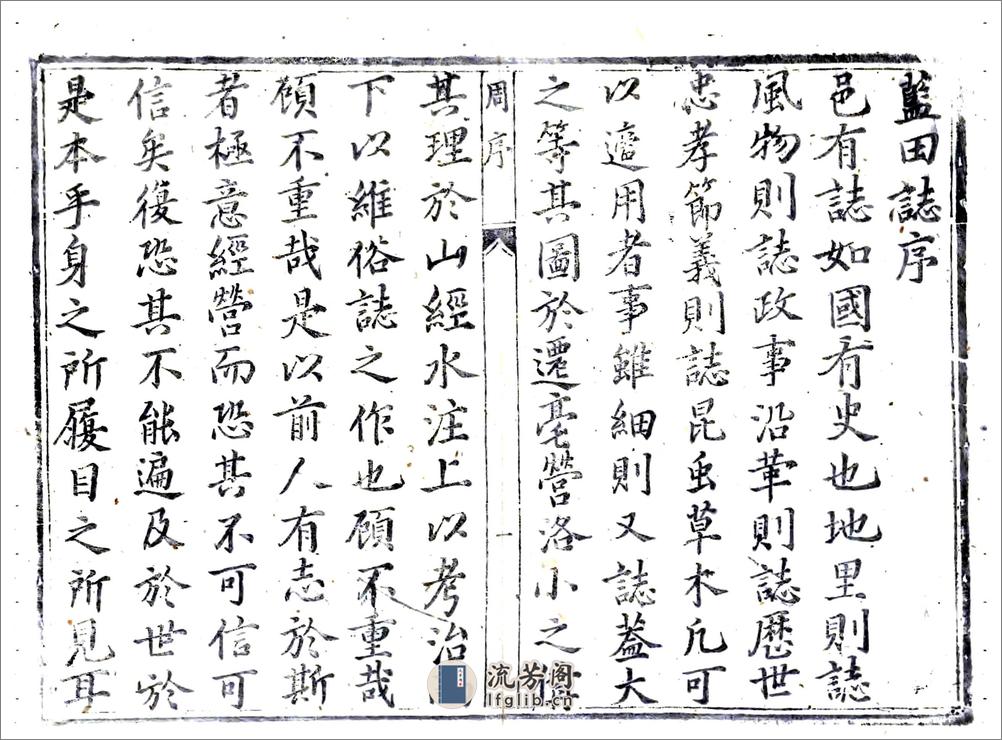 藍田誌序
邑有誌如國有史也地里則誌
風物則誌政事沿革則誌歷世
忠孝節義則誌昆虫草木凡可
以適用者事雖細則又誌葢大
之等其圖於遷亳營洛小之
周序
一
其理於山經水注上以考治
下以維俗誌之作也顧不重哉
顧不重哉是以前人有志於斯
者極意經營而恐其不可信可
信矣復恐其不能遍及於世於
是本乎身之所履目之所見耳
流芳阁
lfglib.cn